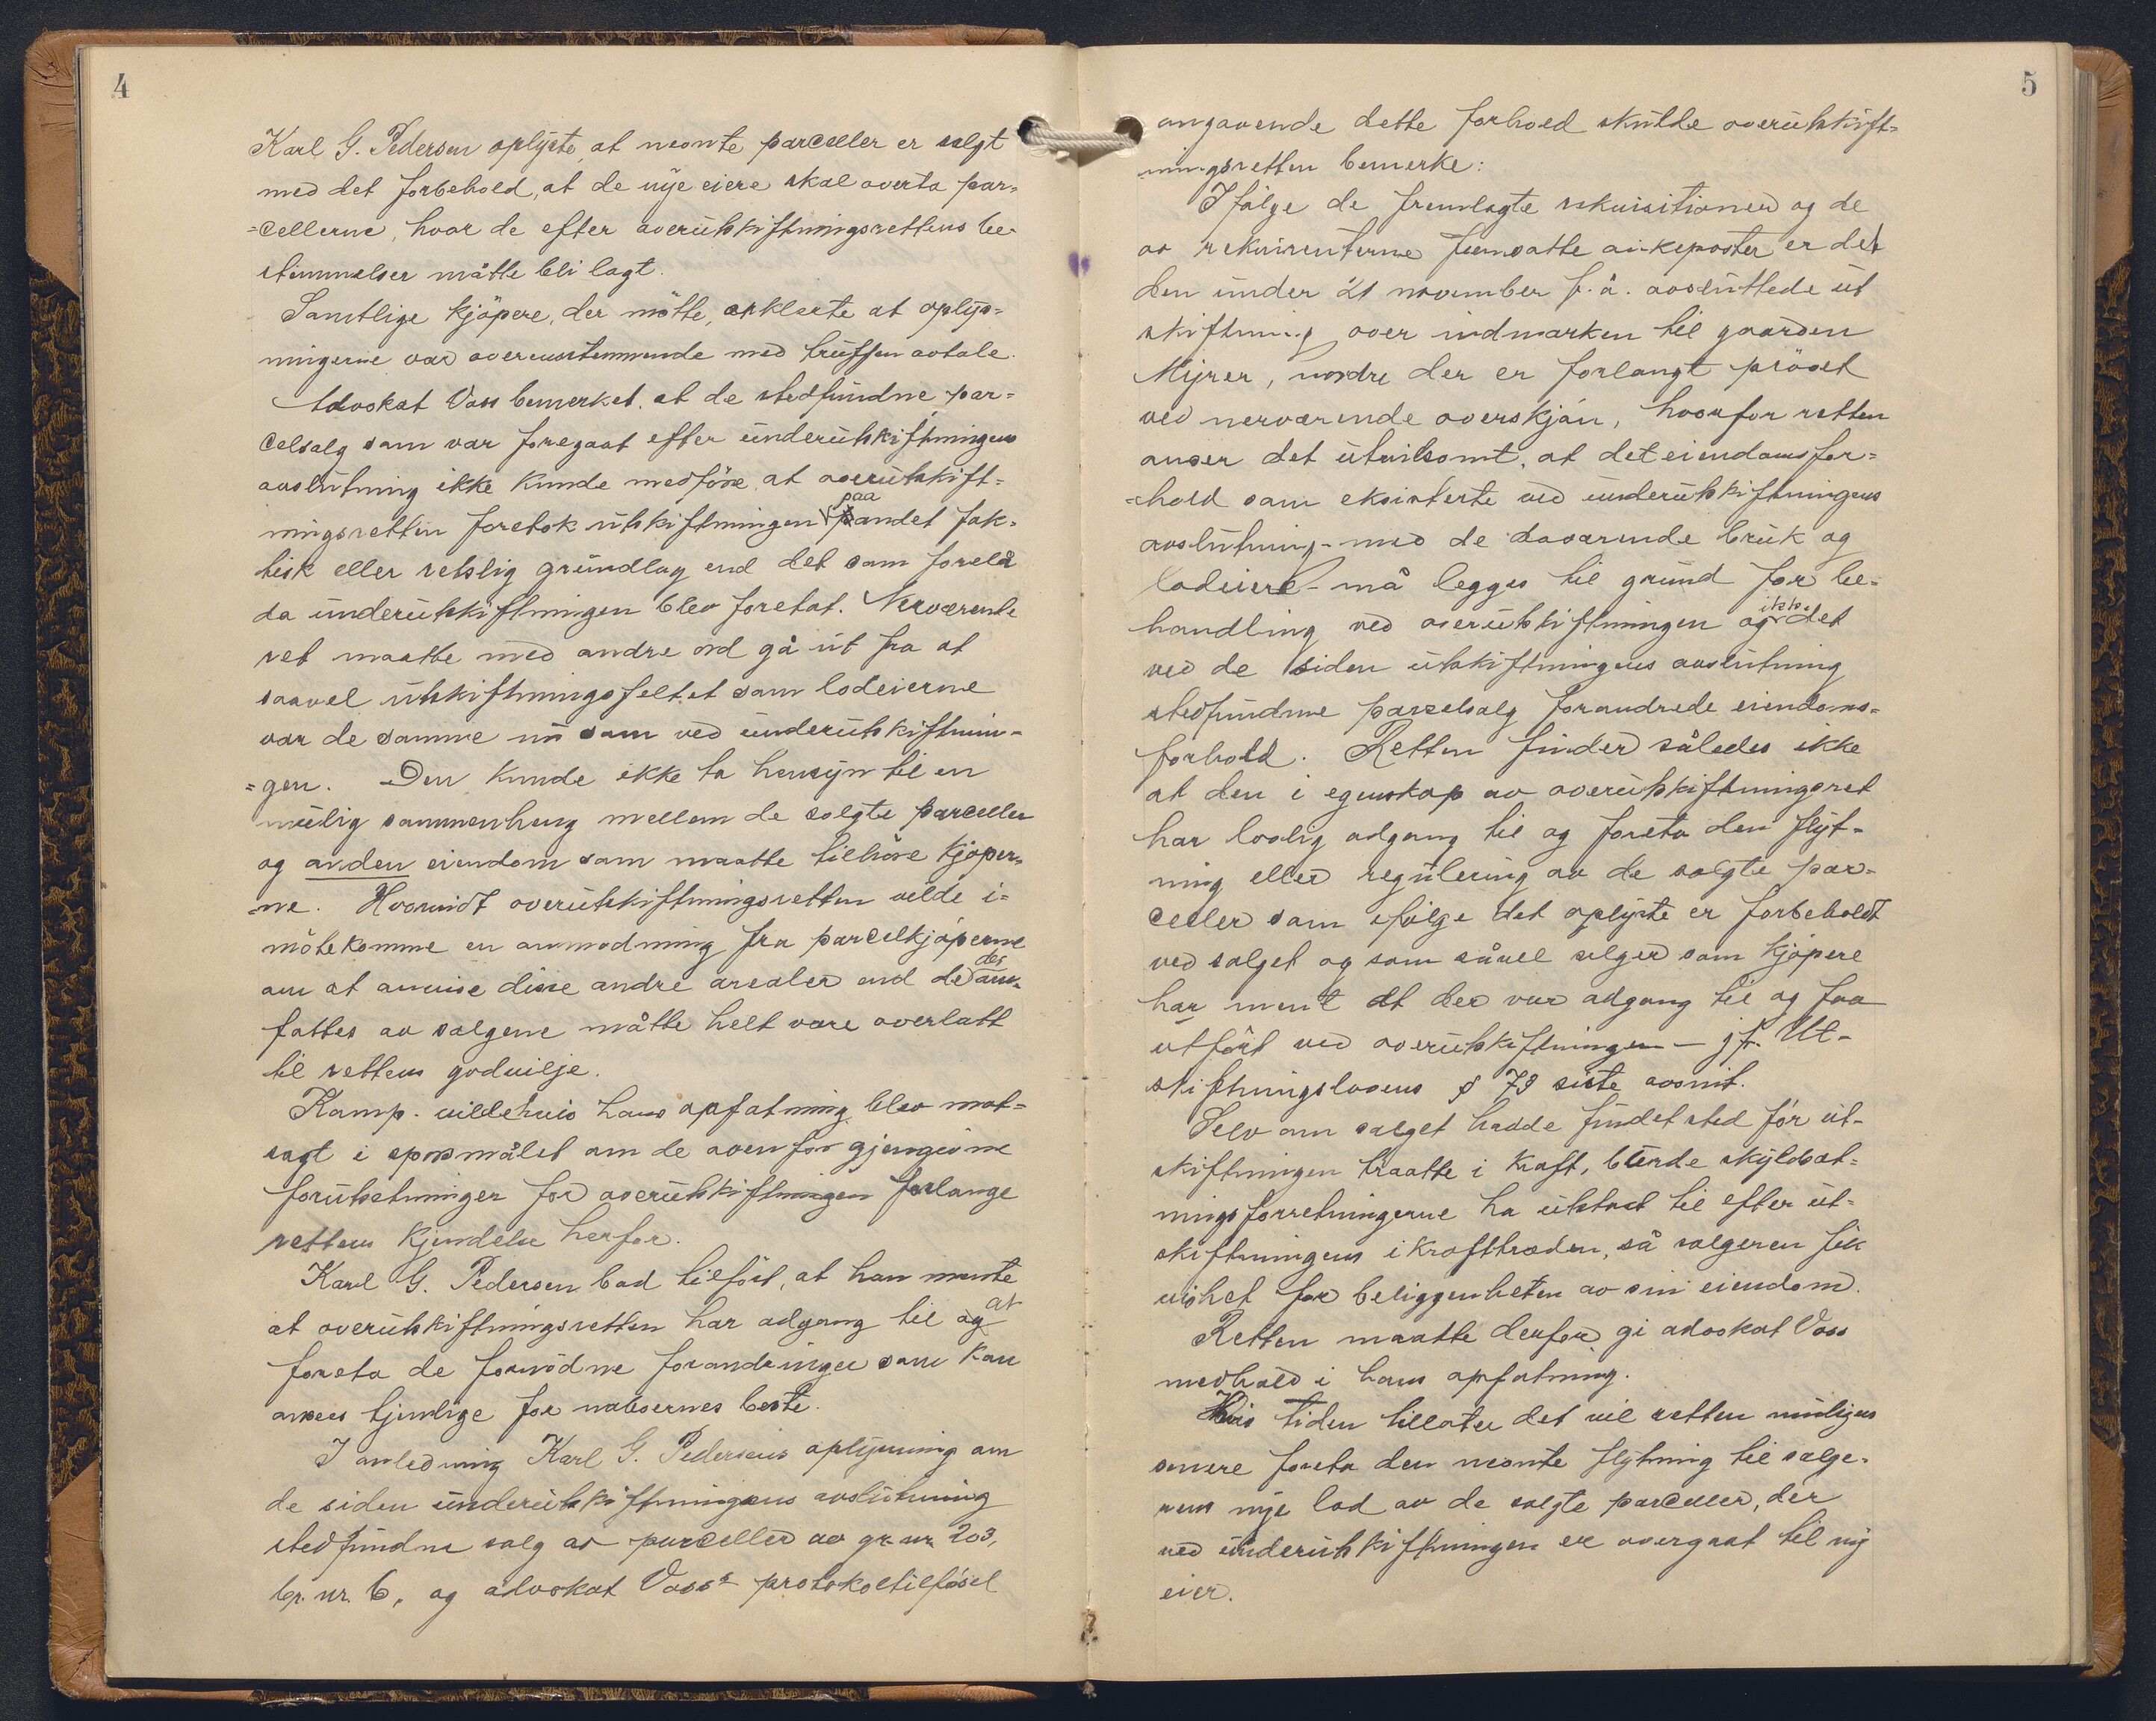 4
Karl G. Pedersen oplyste, at nevnte parceller er solgt
med det forbehold, at de nye eiere skal overta par=
=cellerne, hvor de efter overutskiftningsrettens be-
stemmelser måtte bli lagt.
Samtlige kjöpere, der mötte, erklærte at oplys=
ningerne var overensstemmende med truffen avtale.
Advokat Voss bemerket, at de stedfundne par=
celsalg som var foregaat efter underutskiftningens
avslutning ikke kunde medföre at overutskift=
ningsretten foretok utskiftningen paa andet fak=
tisk eller retslig grundlag end det som forelå
da underutskiftningen blev foretat. Nerværende
ret maatte med andre ord gå ut fra at
saavel utskiftningsfeltet som lodeierne
var de samme nu som ved underutskiftnin-
=gen. Den kunde ikke ta hensyn til en
mulig sammenheng mellem de solgte parceller
og anden eiendom som maatte tilhöre kjöper=
=ne. Hvorvidt overutskiftningsretten vilde i=
mötekomme en anmodning fra parcelkjöperne
om at anvise disse andre arealer end de der om=
fattes av salgene måtte helt være overlatt
til rettens godvilje.
Kamp. vilde hvis hans opfatning blev mot=
sagt i spörsmålet om de ovenfor gjengivne
forutsetninger for overutskiftningen forlange
rettens kjendelse herfor.
Karl G. Pedersen bad tilfört, at han mente
at overutskiftningsretten har adgang til og at
foreta de fornödne forandringer som kan
ansees tjenlige for naboernes beste.
I anledning Karl G. Pedersens oplysning om
de siden underutskiftningens avslutning
stedfundne salg av parceller av gr. nr. 203,
br. nr. 6, og advokat Voss's protokoltilförsel
5
angaaende dette forhold skulde overutskift=
ningsretten bemerke:
Ifölge de fremlagte rekvisitioner og de
av rekvirenterne fremsatte ankeposter er det
den under 21 november f. å. avsluttede ut
skiftning over indmarken til gaarden
Myrer, nordre der er forlangt prövet
ved nerværende overskjön, hvorfor retten
anser det utvilsomt, at det eiendomsfor=
=hold som eksisterte ved underutskiftningens
avslutning - med de daværende bruk og
lodeiere - må legges til grund for be=
handling ved overutskiftningen og ikke det
ved de siden utskiftningens avslutning
stedfundne parselsalg forandrede eiendoms=
forhold. Retten finder således ikke
at den i egenskap av overutskiftningsret
har lovlig adgang til og foreta den flyt=
ning eller regulering av de solgte par=
celler som ifölge det oplyste er forbeholdt
ved salget og som såvel selger som kjöpere
har ment at der var adgang til og faa
utfört ved overutskiftningen - jf. Ut-
skiftningslovens § 79 siste avsnit.
Selv om salget hadde fundet sted för ut-
skiftningen traatte i kraft, burde skyldsæt=
ningsforretningerne ha utstaat til efter ut=
skiftningens ikrafttræden, så selgeren fik
vished for beliggenheten av sin eiendom.
Retten maatte derfor gi advokat Voss
medhold i hans opfatning.
Hvis tiden tillater det vil retten muligens
senere foreta den nevnte flytning til selge-
rens nye lod av de solgte parceller, der
ved underutskiftningen er overgaat til ny
eier.